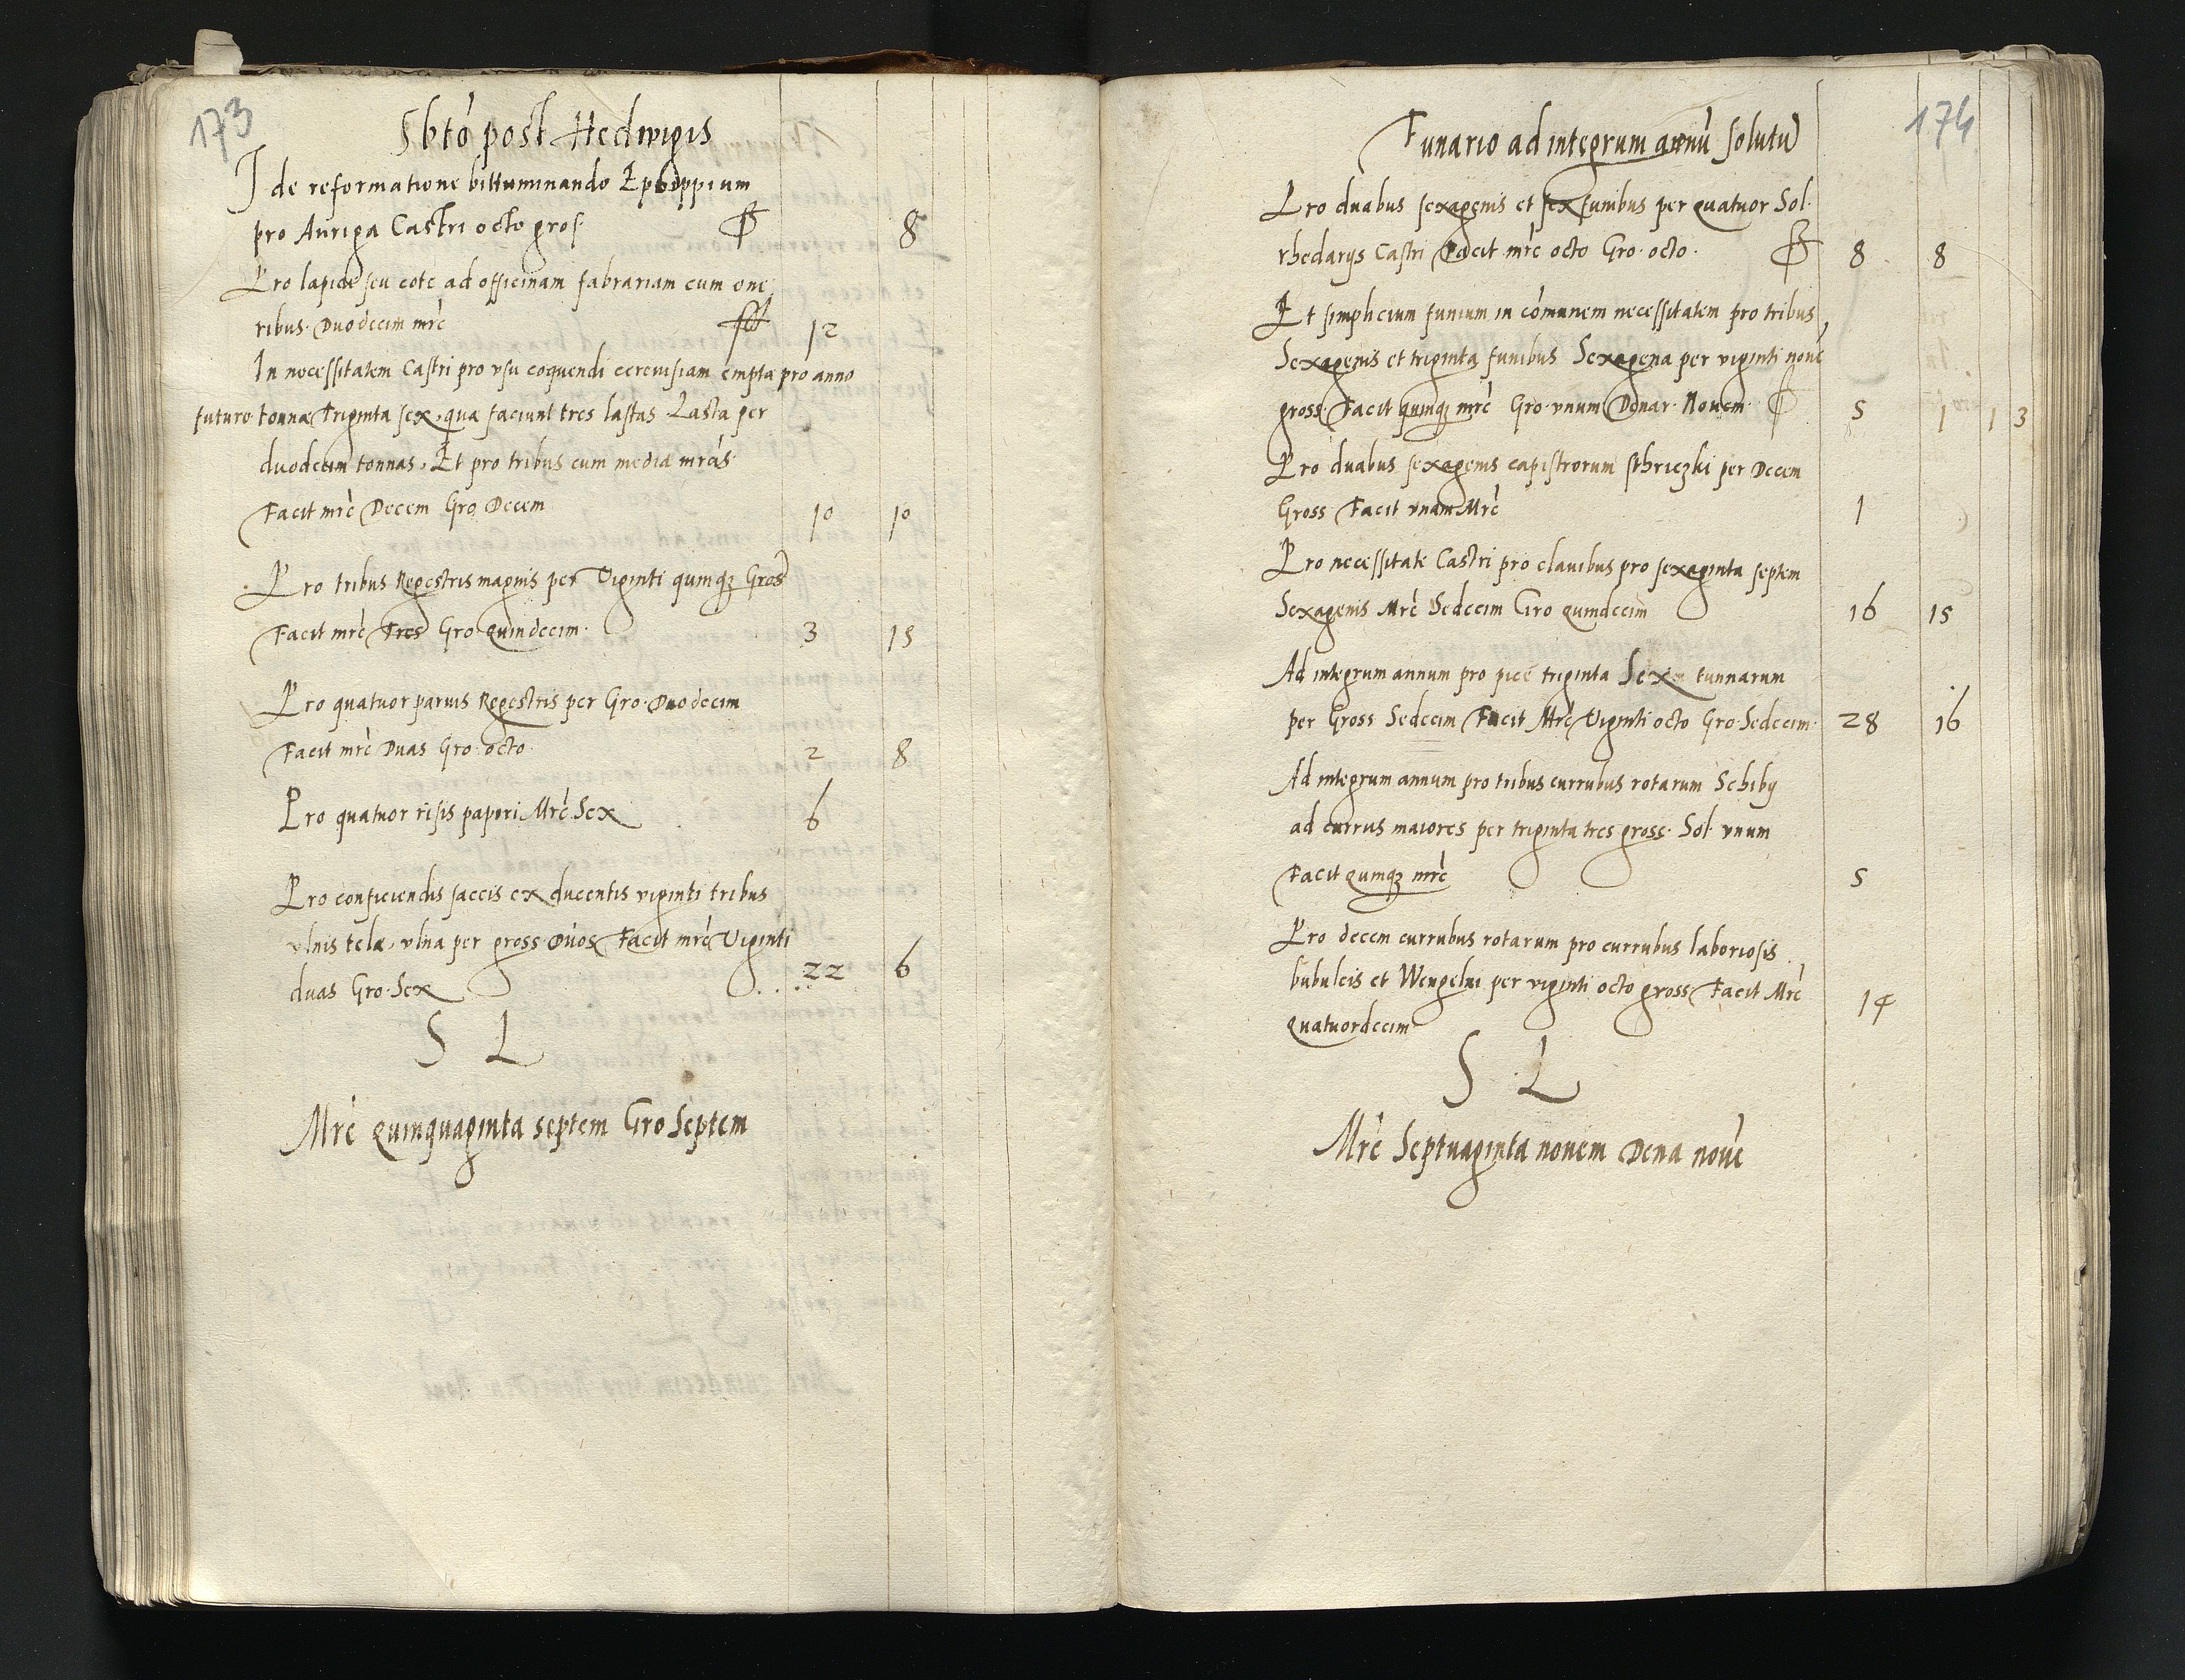 173
Sbto post Hedwigis
I de reformatione bittuminando Ephippium
pro Auriga Castri octo gros. 8
Pro lapide seu cote ad officinam fabrariam cum one
ribus. Duodecim mrc 12
In necessitatem Castri pro vsu coquendi cereuisiam empta pro anno
futuro tonnæ Triginta sex, quæ faciunt tres lastas. Lasta per
duodecim tonnas. Et pro tribus cum media mrcis
Facit mrc Decem Gro Decem 10 10
Pro tribus Regestris magnis per Viginti quinqz Gros
Facit mrc Tres Gro Quindecim. 3 15
Pro quatuor paruis Regestris per Gro. Duodecim
Facit mrc Duas Gro. octo. 2 8
Pro quatuor risis papiri Mrc Sex 6
Pro conficiendis saccis ex ducentis viginti tribus
vlnis telæ, vlna per gross. Duos Facit mrc Viginti
duas Gro. Sex 22 6
S L
Mrc Quinquaginta septem Gro Septem
174
Funario ad integrum annu solutu
Pro duabus sexagenis et sex funibus per quatuor Sol.
rhedarys Castri Facit mrc octo Gro. octo. 8 8
Et simplicium funium in comunem necessitatem pro tribus
Sexagenis et triginta funibus Sexagena per viginti noue
gross. Facit quinqz mrc Gro. vnum Denar. Nouem 5 1 1 3
Pro duabus sexagenis capistrorum sthriczki per Decem
Gross Facit vnam Mrc 1
Pro necessitate Castri pro clauibus pro sexaginta septem
Sexagenis Mrc Sedecim Gro Quindecim 16 15
Ad integrum annum pro pice triginta Sex tunnarum
per Gross Sedecim Facit Mrc Viginti octo Gro. Sedecim. 28 16
Ad integrum annum pro tribus currubus rotarum Schiby
ad currus maiores per triginta tres gross. Sol. vnum
Facit quinqz mrc 5
Pro decem currubus rotarum pro currubus laboriosis
bubulcis et Wengelni per viginti octo gross Facit Mrc
Quatuordecim 14
S L
Mrc Septuaginta nouem Dena noue